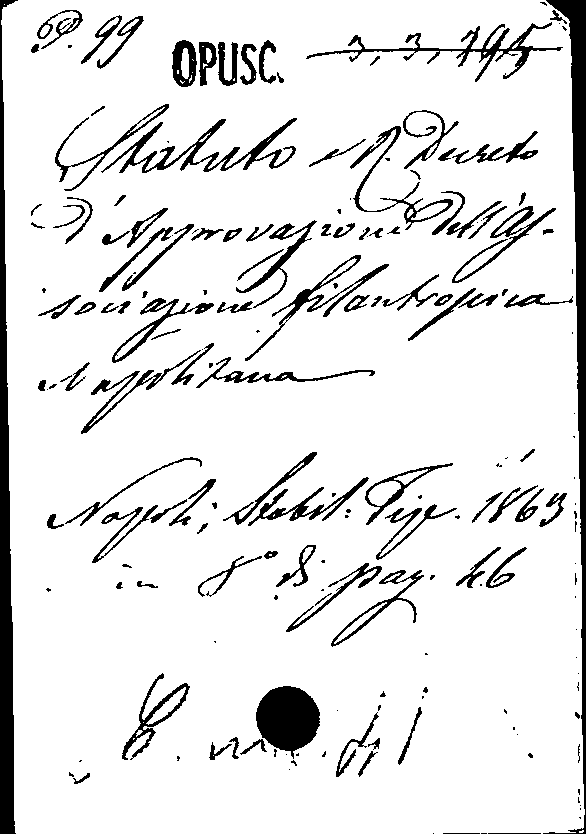 P. 99 OPUSC. 3, 3, 195
Statuto e R. Decreto
d'Approvazione dell'As-
sociazione filantropica
Napolitana
Napoli; Stabil: Tip. 1863
in 8° di pag. 46